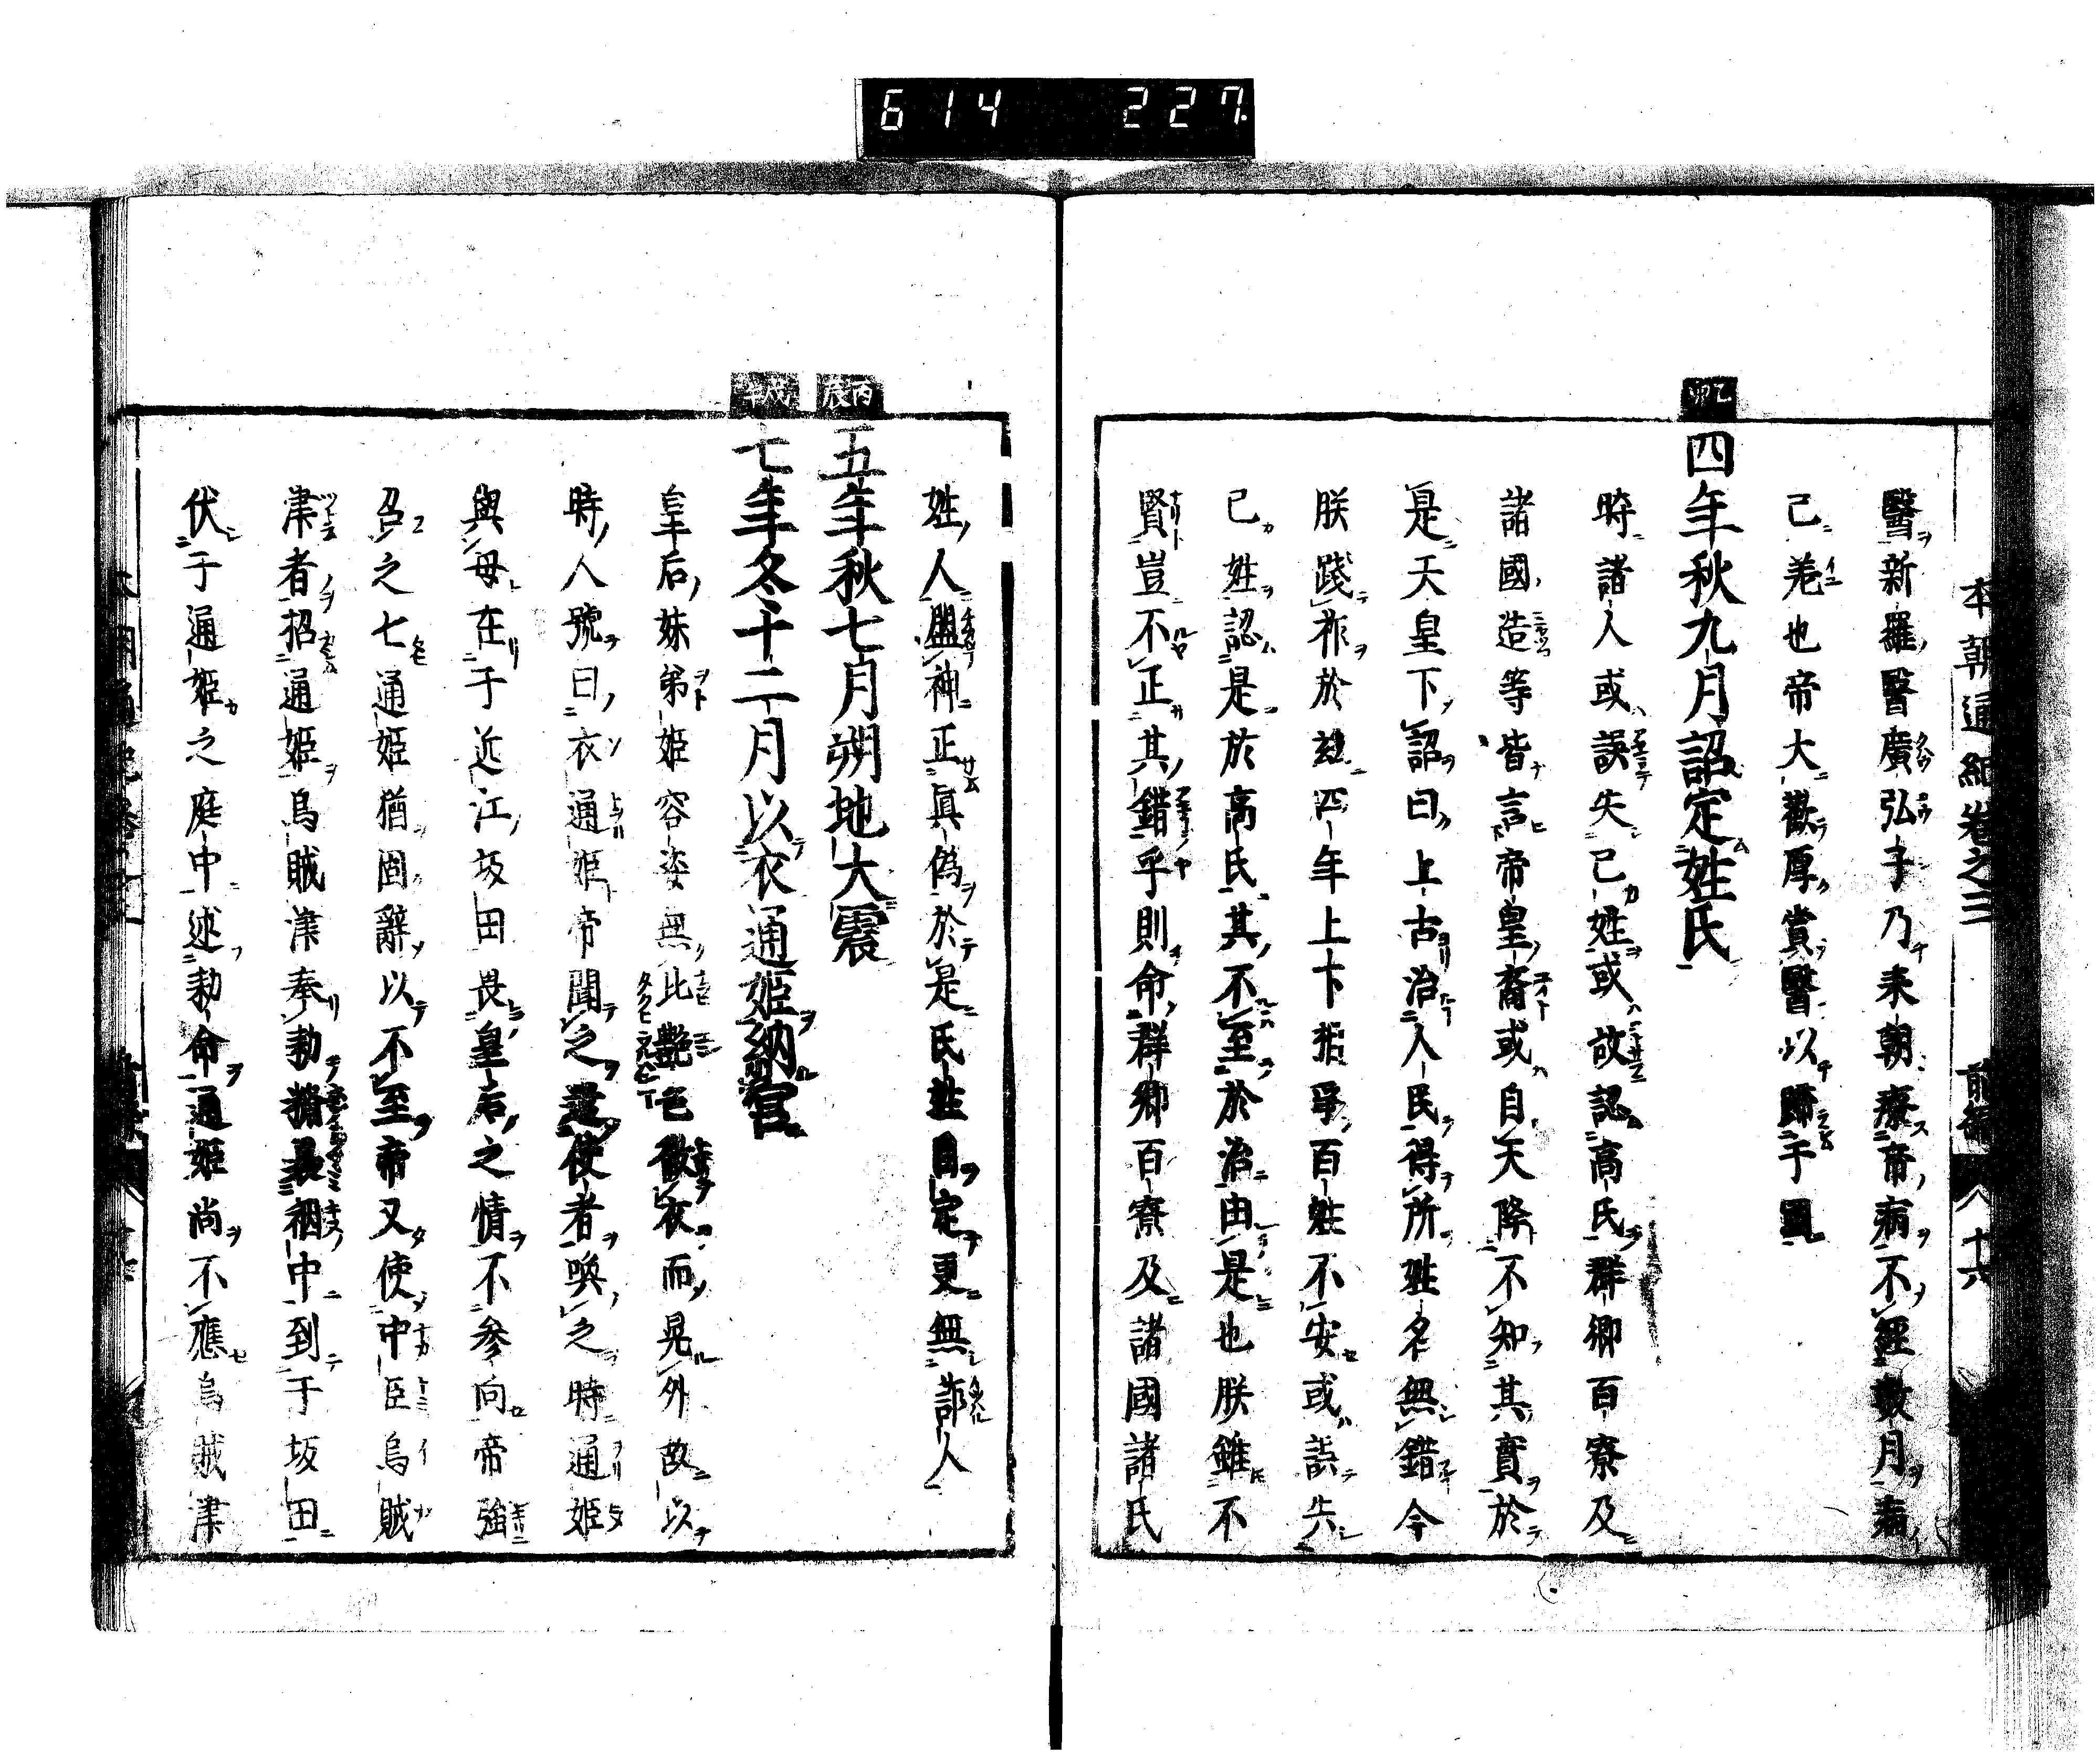 614 227
本朝通紀卷之三 前編 八 十六
醫新羅醫廣弘子乃来朝療帝病不經數月病
已差也帝大歡厚賞醫以歸于國
乙卯
四年秋九月詔定姓氏
時諸人或誤失己姓或故認高氏群卿百寮及
諸國造等皆言帝皇裔或自天降不知其實於
是天皇下詔曰上古治人民得所姓名無錯今
朕踐祚於玆四年上下相爭百姓不安或誤失
己姓認是於高氏其不至於治由是也朕雖不
賢豈不正其錯乎則命群卿百寮及諸國諸氏
姓人盟神正眞偽於是氏姓自定更無詐人
丙辰
五年秋七月朔地大震
戊午
七年冬十二月以衣通姫納宮
皇后妹弟姫容姿無比艶色徹衣而晃外故以
時人號曰衣通姫帝聞之遣使者喚之時通姫
與母在于近江坂田畏皇后之情不參向帝強
召之七通姫猶固辭以不至帝又使中臣烏賊
津者招通姫烏賊津奉勅褁裀中到于坂田
伏于通姫之庭中述勅命通姫尚不應烏賊津